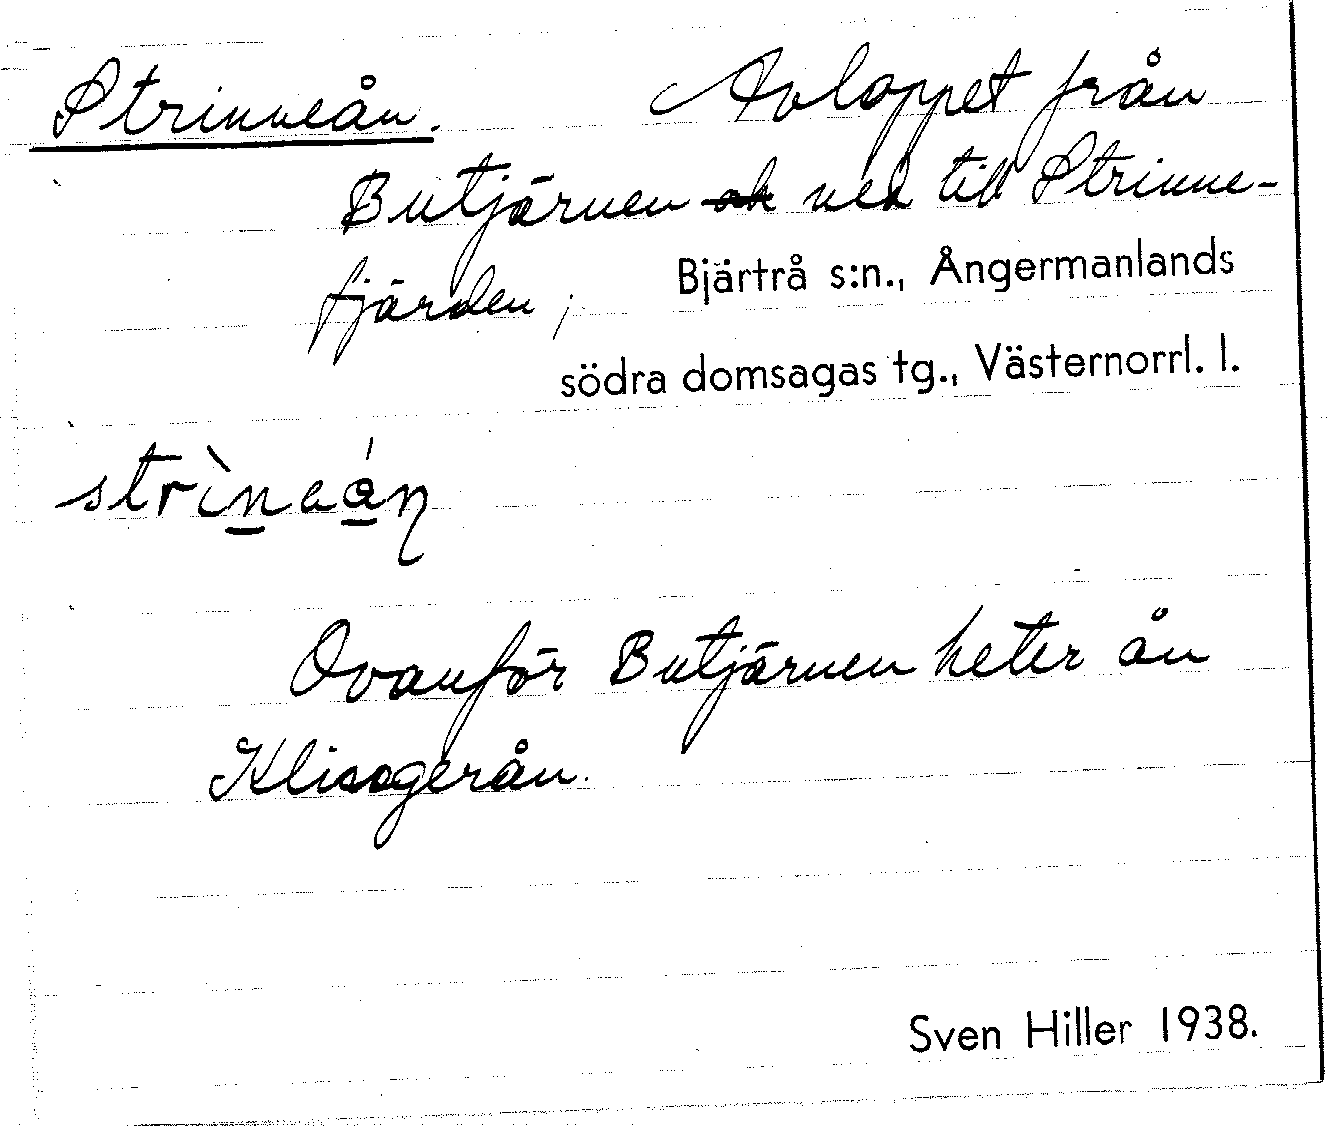 Strinneån. Avloppet från
Butjärnen ned till Strinne-
fjärden; Bjärtrå s:n., Ångermanlands
södra domsagas tg., Västernorrl. l.
strìneǻn
Ovanför Butjärnen heter ån
Klisogerån.
Sven Hiller 1938.